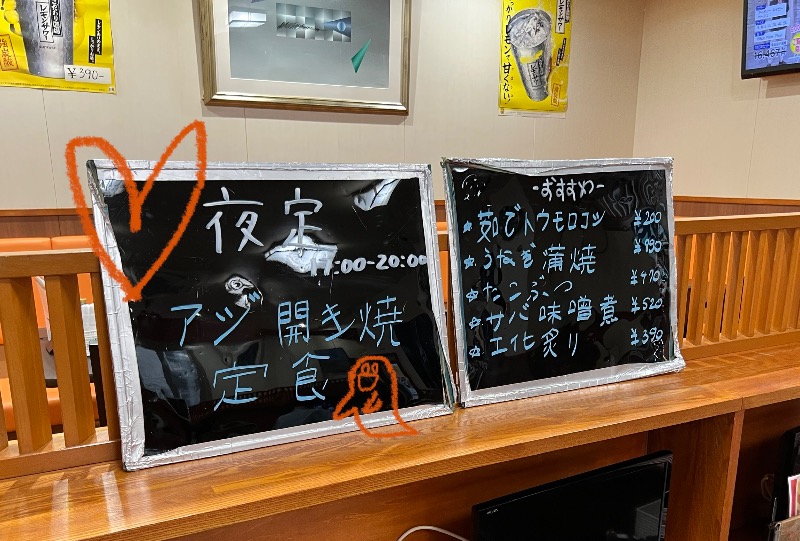 レモンサワー
¥390-
レモンサワー
っかりレモンで甘くない
夜定
17:00-20:00
アジ開き焼
定食
-おすすめ-
★茹でトウモロコシ ¥200
★うなぎ蒲焼 ¥990
★たこぶつ ¥470
★サバ味噌煮 ¥520
★エイヒ炙り ¥390